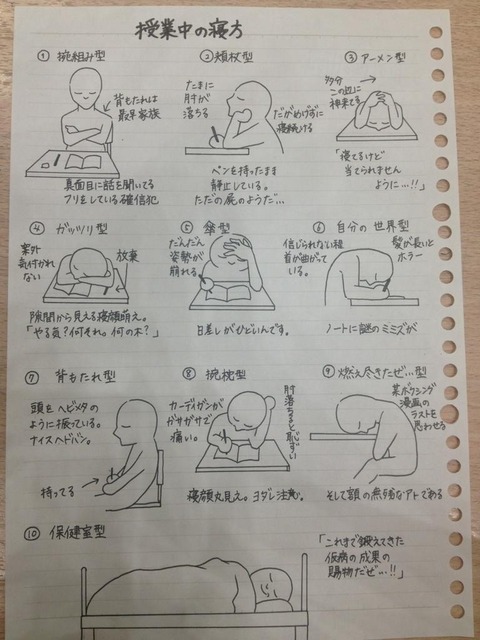 授業中の寝方
① 腕組み型
背もたれは
最早家族
真面目に話を聞いてる
フリをしている確信犯
② 頬杖型
たまに
肘が
落ちる
だがめげずに
寝続ける
ペンを持ったまま
静止している。
ただの屍のようだ…
③ アーメン型
多分
この辺に
神来てる
「寝てるけど
当てられません
ように…!!」
④ ガッツリ型
案外
気付かれ
ない
放棄
隙間から見える寝顔萌え。
「やる気?何それ。何の木?」
⑤ 傘型
だんだん
姿勢が
崩れる。
日差しがひどいんです。
⑥ 自分の世界型
信じられない程
首が曲がって
いる。
髪が長いと
ホラー
ノートに謎のミミズが
⑦ 背もたれ型
頭をヘビメタの
ように振っている。
ナイスヘドバン。
持ってる
⑧ 腕枕型
カーディガンが
ガサガサで
痛い。
肘落ちると恥ずい
寝顔丸見え。ヨダレ注意。
⑨ 燃え尽きたぜ…型
某ボクシング
漫画の
ラストを
思わせる
そして額の無残なアトである
⑩ 保健室型
「これまで鍛えてきた
仮病の成果の
賜物だぜ…!!」